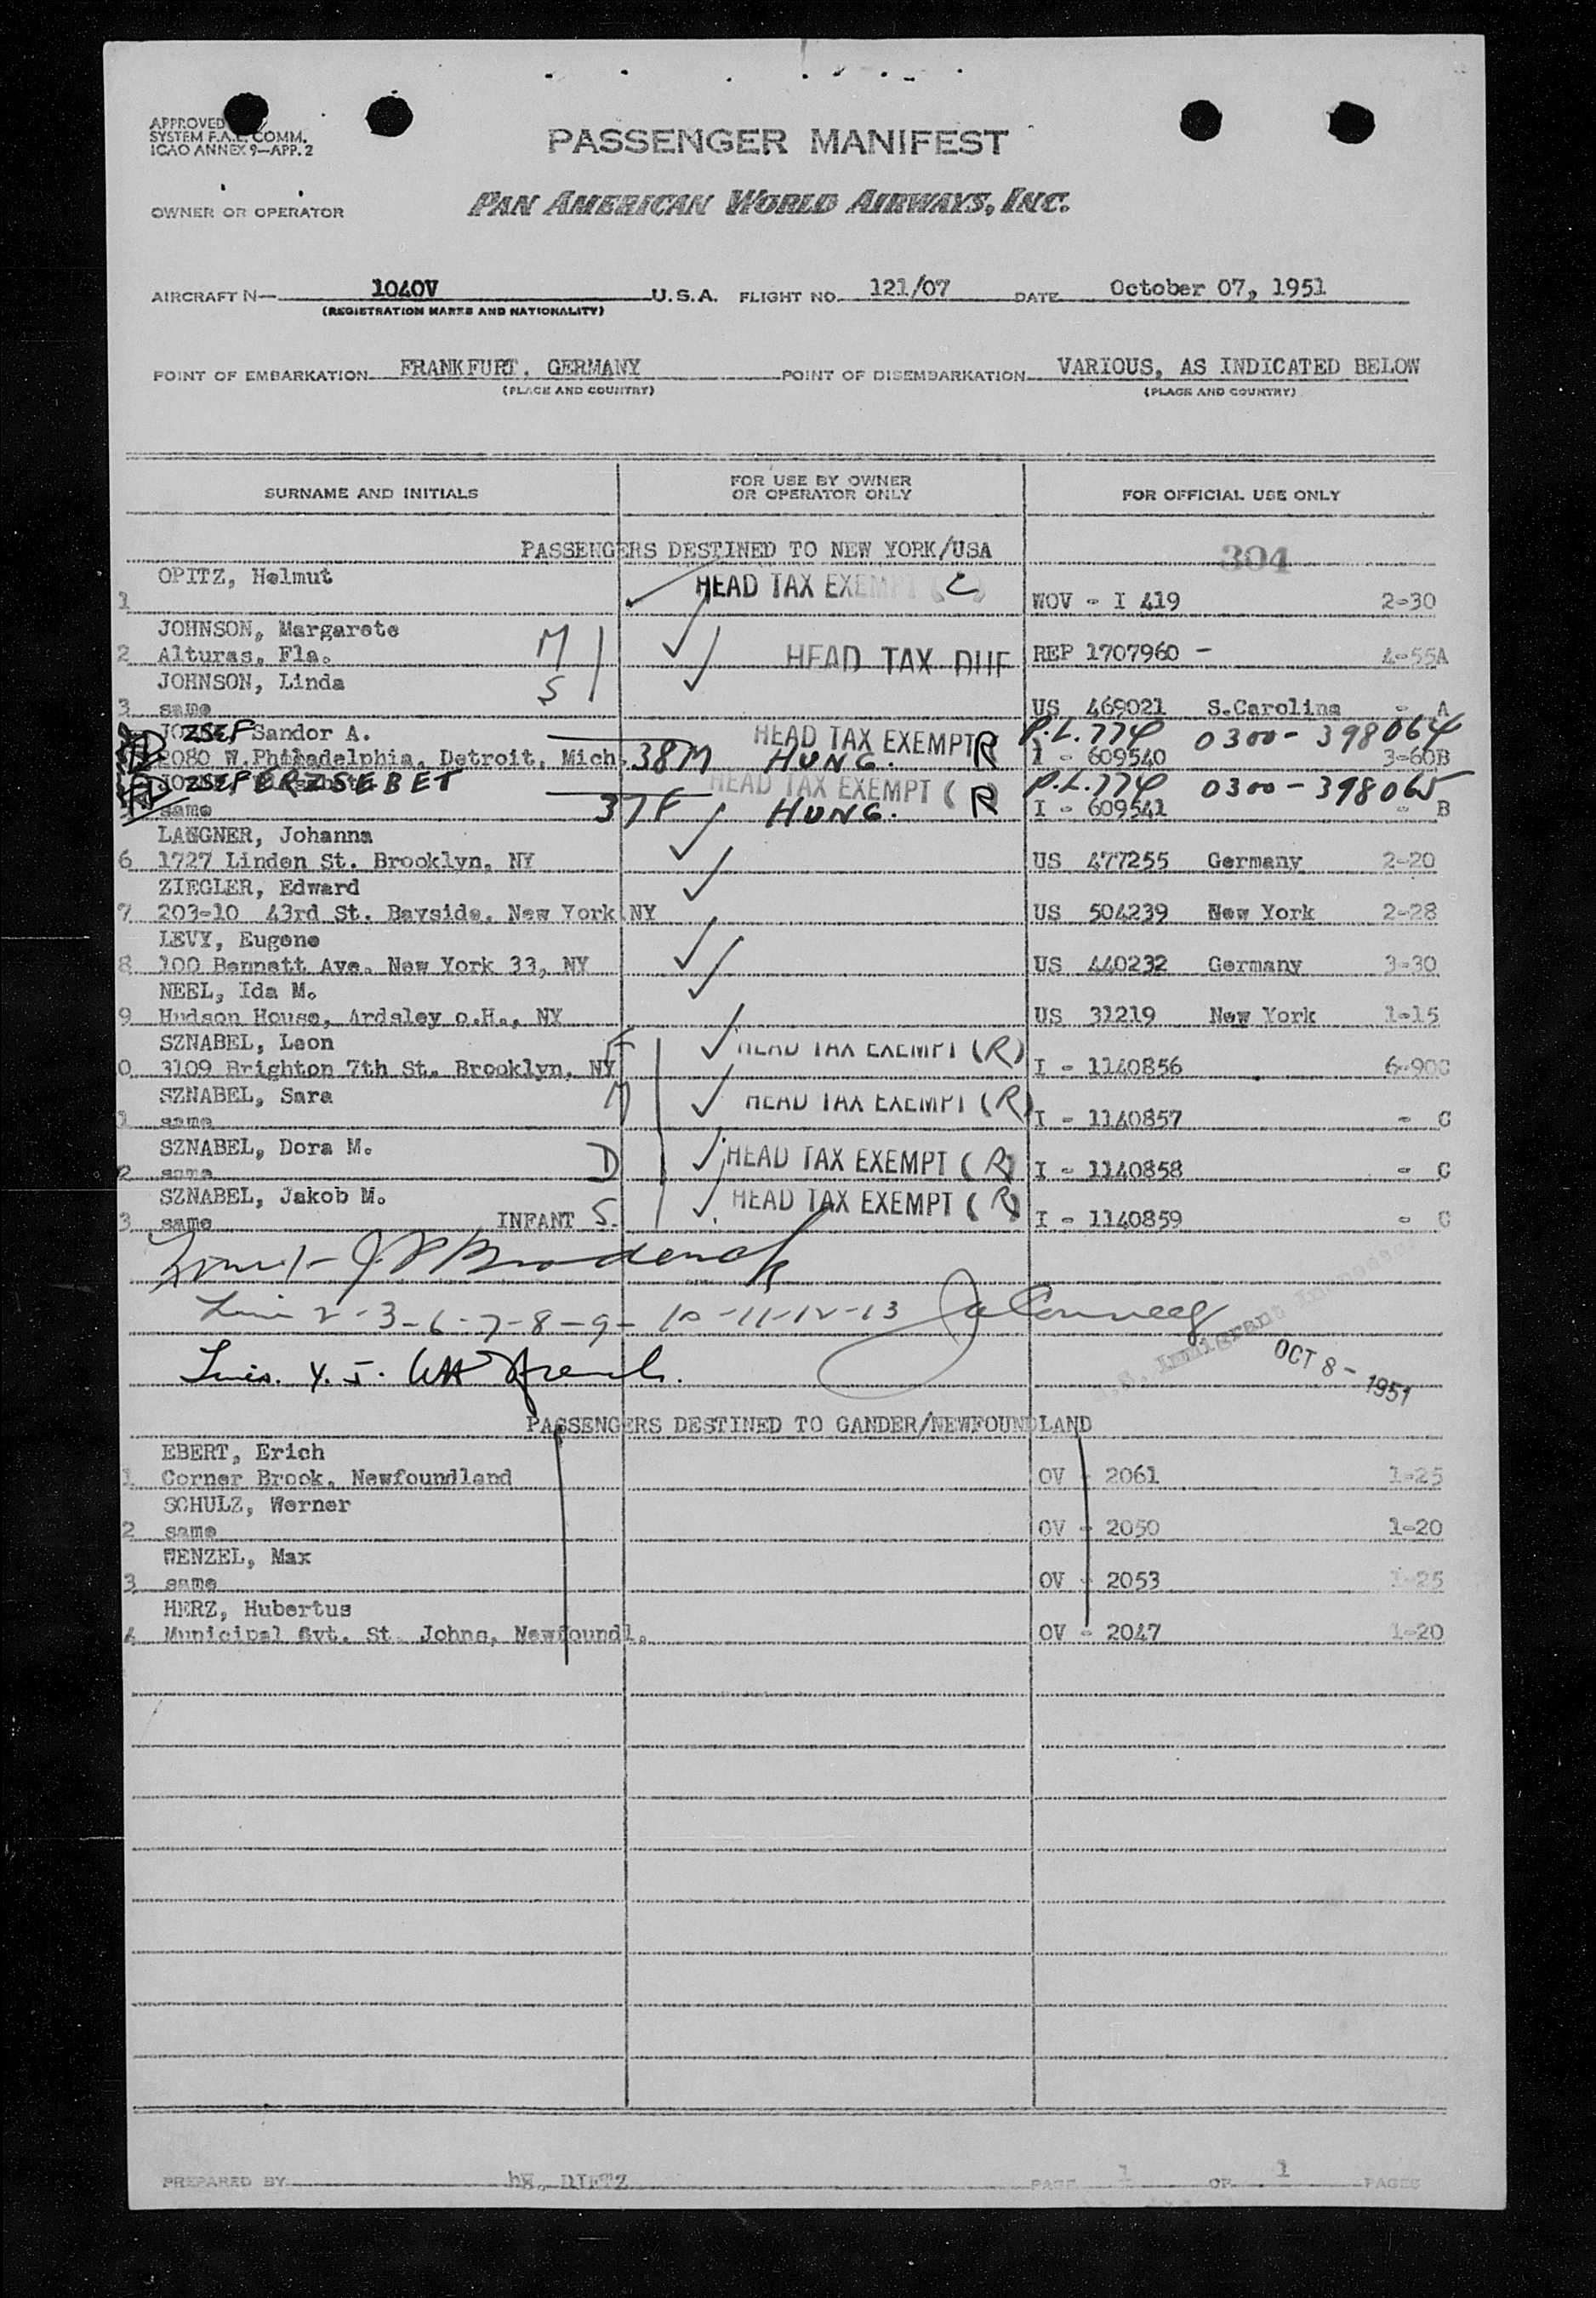 APPROVED
SYSTEM F.A.L. COMM.
ICAO ANNEX 9—APP. 2
PASSENGER MANIFEST
OWNER OR OPERATOR
PAN AMERICAN WORLD AIRWAYS, INC.
AIRCRAFT N— 1040V U.S.A. FLIGHT NO. 121/07 DATE October 07, 1951
(REGISTRATION MARKS AND NATIONALITY)
POINT OF EMBARKATION FRANKFURT, GERMANY POINT OF DISEMBARKATION VARIOUS, AS INDICATED BELOW
(PLACE AND COUNTRY) (PLACE AND COUNTRY)
SURNAME AND INITIALS FOR USE BY OWNER OR OPERATOR ONLY FOR OFFICIAL USE ONLY
PASSENGERS DESTINED TO NEW YORK/USA 304
OPITZ, Helmut HEAD TAX EXEMPT (C)
1 WOV - I 419 2-30
JOHNSON, Margarete M
2 Alturas, Fla. HEAD TAX REP 1707960 - 4-55A
JOHNSON, Linda S
3 same US 469021 S.Carolina - A
JOZSEF Sandor A. HEAD TAX EXEMPT R P.L.774 0300-398064
2080 W.Philadelphia, Detroit, Mich. 38M HUNG. I - 609540 3-60B
JOZSEF ERZSEBET HEAD TAX EXEMPT (R) P.L.774 0300-398065
same 37F HUNG. I - 609541 - B
LANGNER, Johanna
6 1727 Linden St. Brooklyn, NY US 477255 Germany 2-20
ZIEGLER, Edward
7 203-10 43rd St. Bayside, New York NY US 504239 New York 2-28
LEVY, Eugene
8 100 Bennett Ave. New York 33, NY US 440232 Germany 3-30
NEEL, Ida M.
9 Hudson House, Ardsley o.H., NY US 31219 New York 1-15
SZNABEL, Leon F HEAD TAX EXEMPT (R)
0 3109 Brighton 7th St. Brooklyn, NY I - 1140856 6-90C
SZNABEL, Sara M HEAD TAX EXEMPT (R)
1 same I - 1140857 - C
SZNABEL, Dora M. D HEAD TAX EXEMPT (R)
2 same I - 1140858 - C
SZNABEL, Jakob M. HEAD TAX EXEMPT (R)
3 same INFANT S. I - 1140859 - C
Line 1 -
Line 2-3-6-7-8-9-10-11-12-13
U.S. Immigrant Inspector
OCT 8 - 1951
Lines. 4. 5.
PASSENGERS DESTINED TO GANDER/NEWFOUNDLAND
EBERT, Erich
1 Corner Brook, Newfoundland OV - 2061 1-25
SCHULZ, Werner
2 same OV - 2050 1-20
WENZEL, Max
3 same OV - 2053 1-25
HERZ, Hubertus
4 Municipal Gvt. St. Johns, Newfoundl. OV - 2047 1-20
PREPARED BY hW. DIETZ PAGE 1 OF 1 PAGES